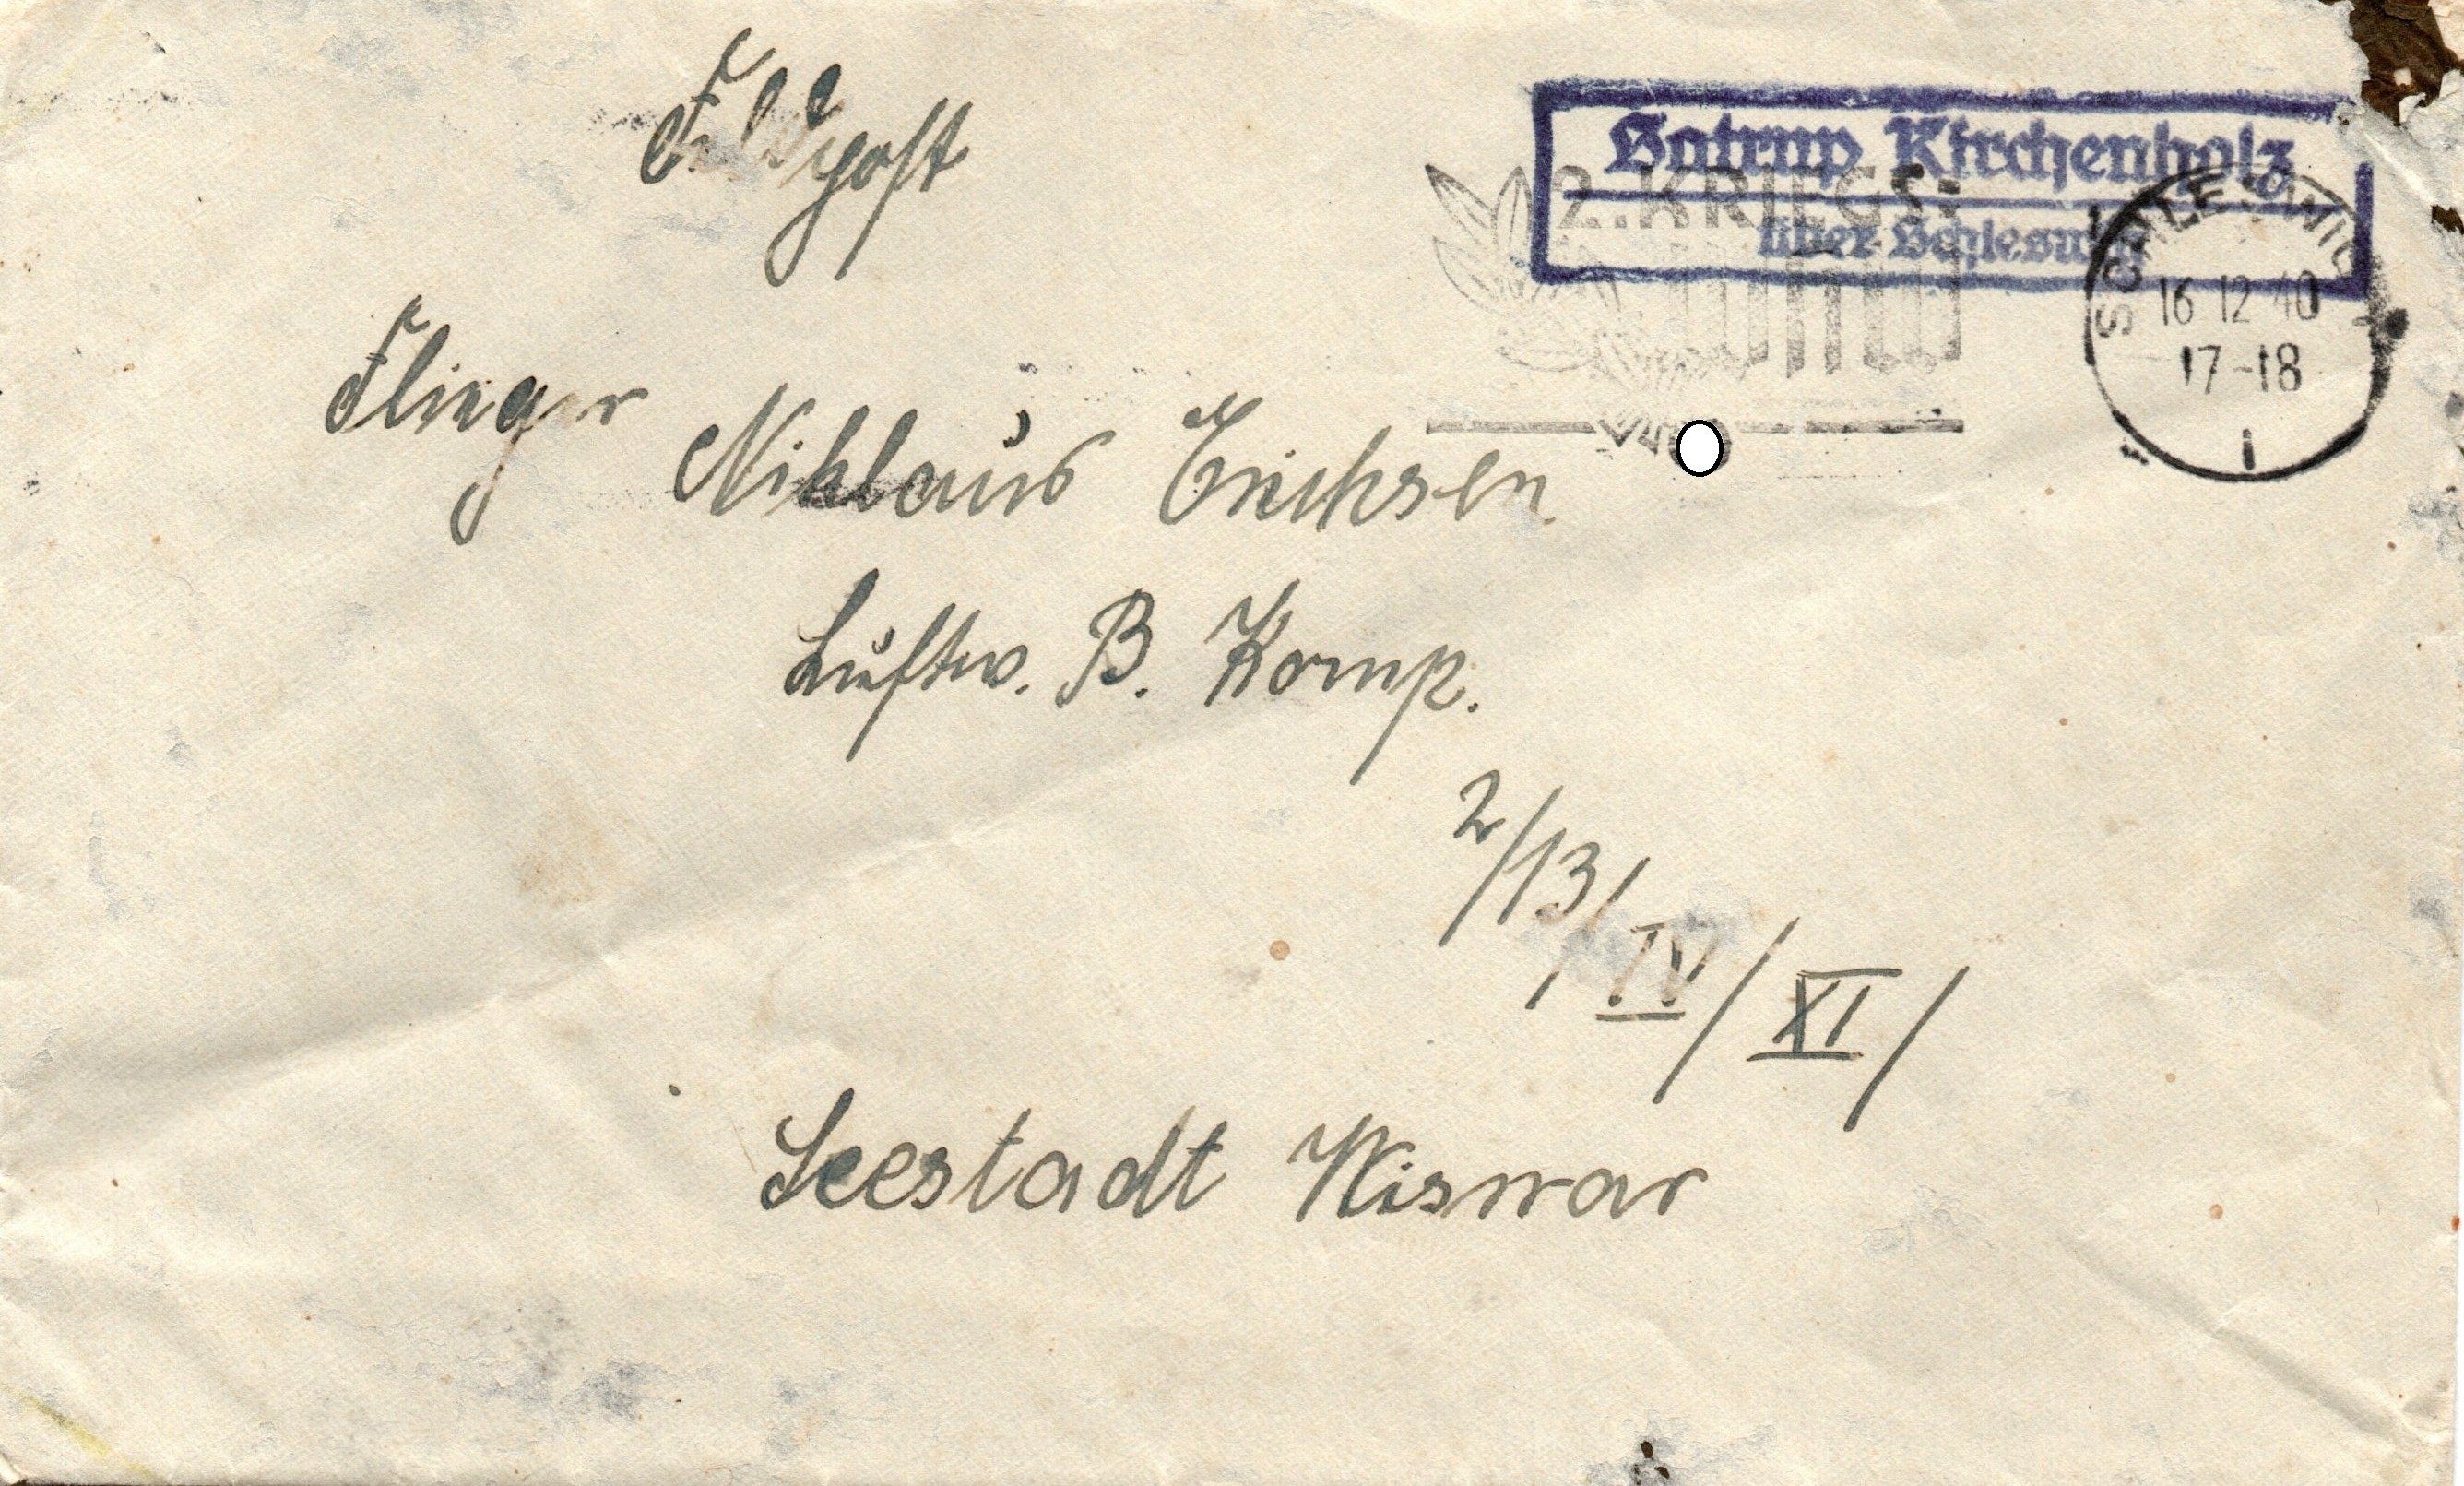 Feldpost
Satrup Kirchenholz
über Schleswig
2. KRIEGS-
SCHLESWIG
16 12 40
17-18
1
Flieger Niklaus Erichsen
Luftw. B. Komp.
2/13/IV/XI/
Seestadt Wismar